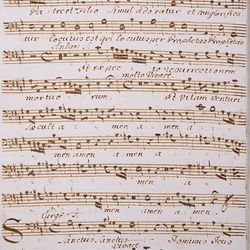 Patre et Filio Simul adoratur et conglorifica
tur locutus est qui locutus per Prophetas Prophetas
Andante
Et expecto resurrectionem
molto Vivace
mortuorum. Et vitam venturi
Sæculi amen amen a
men amen amen a
men amen amen a
Largo
Sanctus, Sanctus Dominus Deus
Vivace